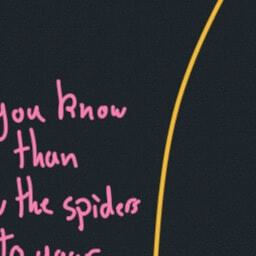 you know
than
the spiders
to your